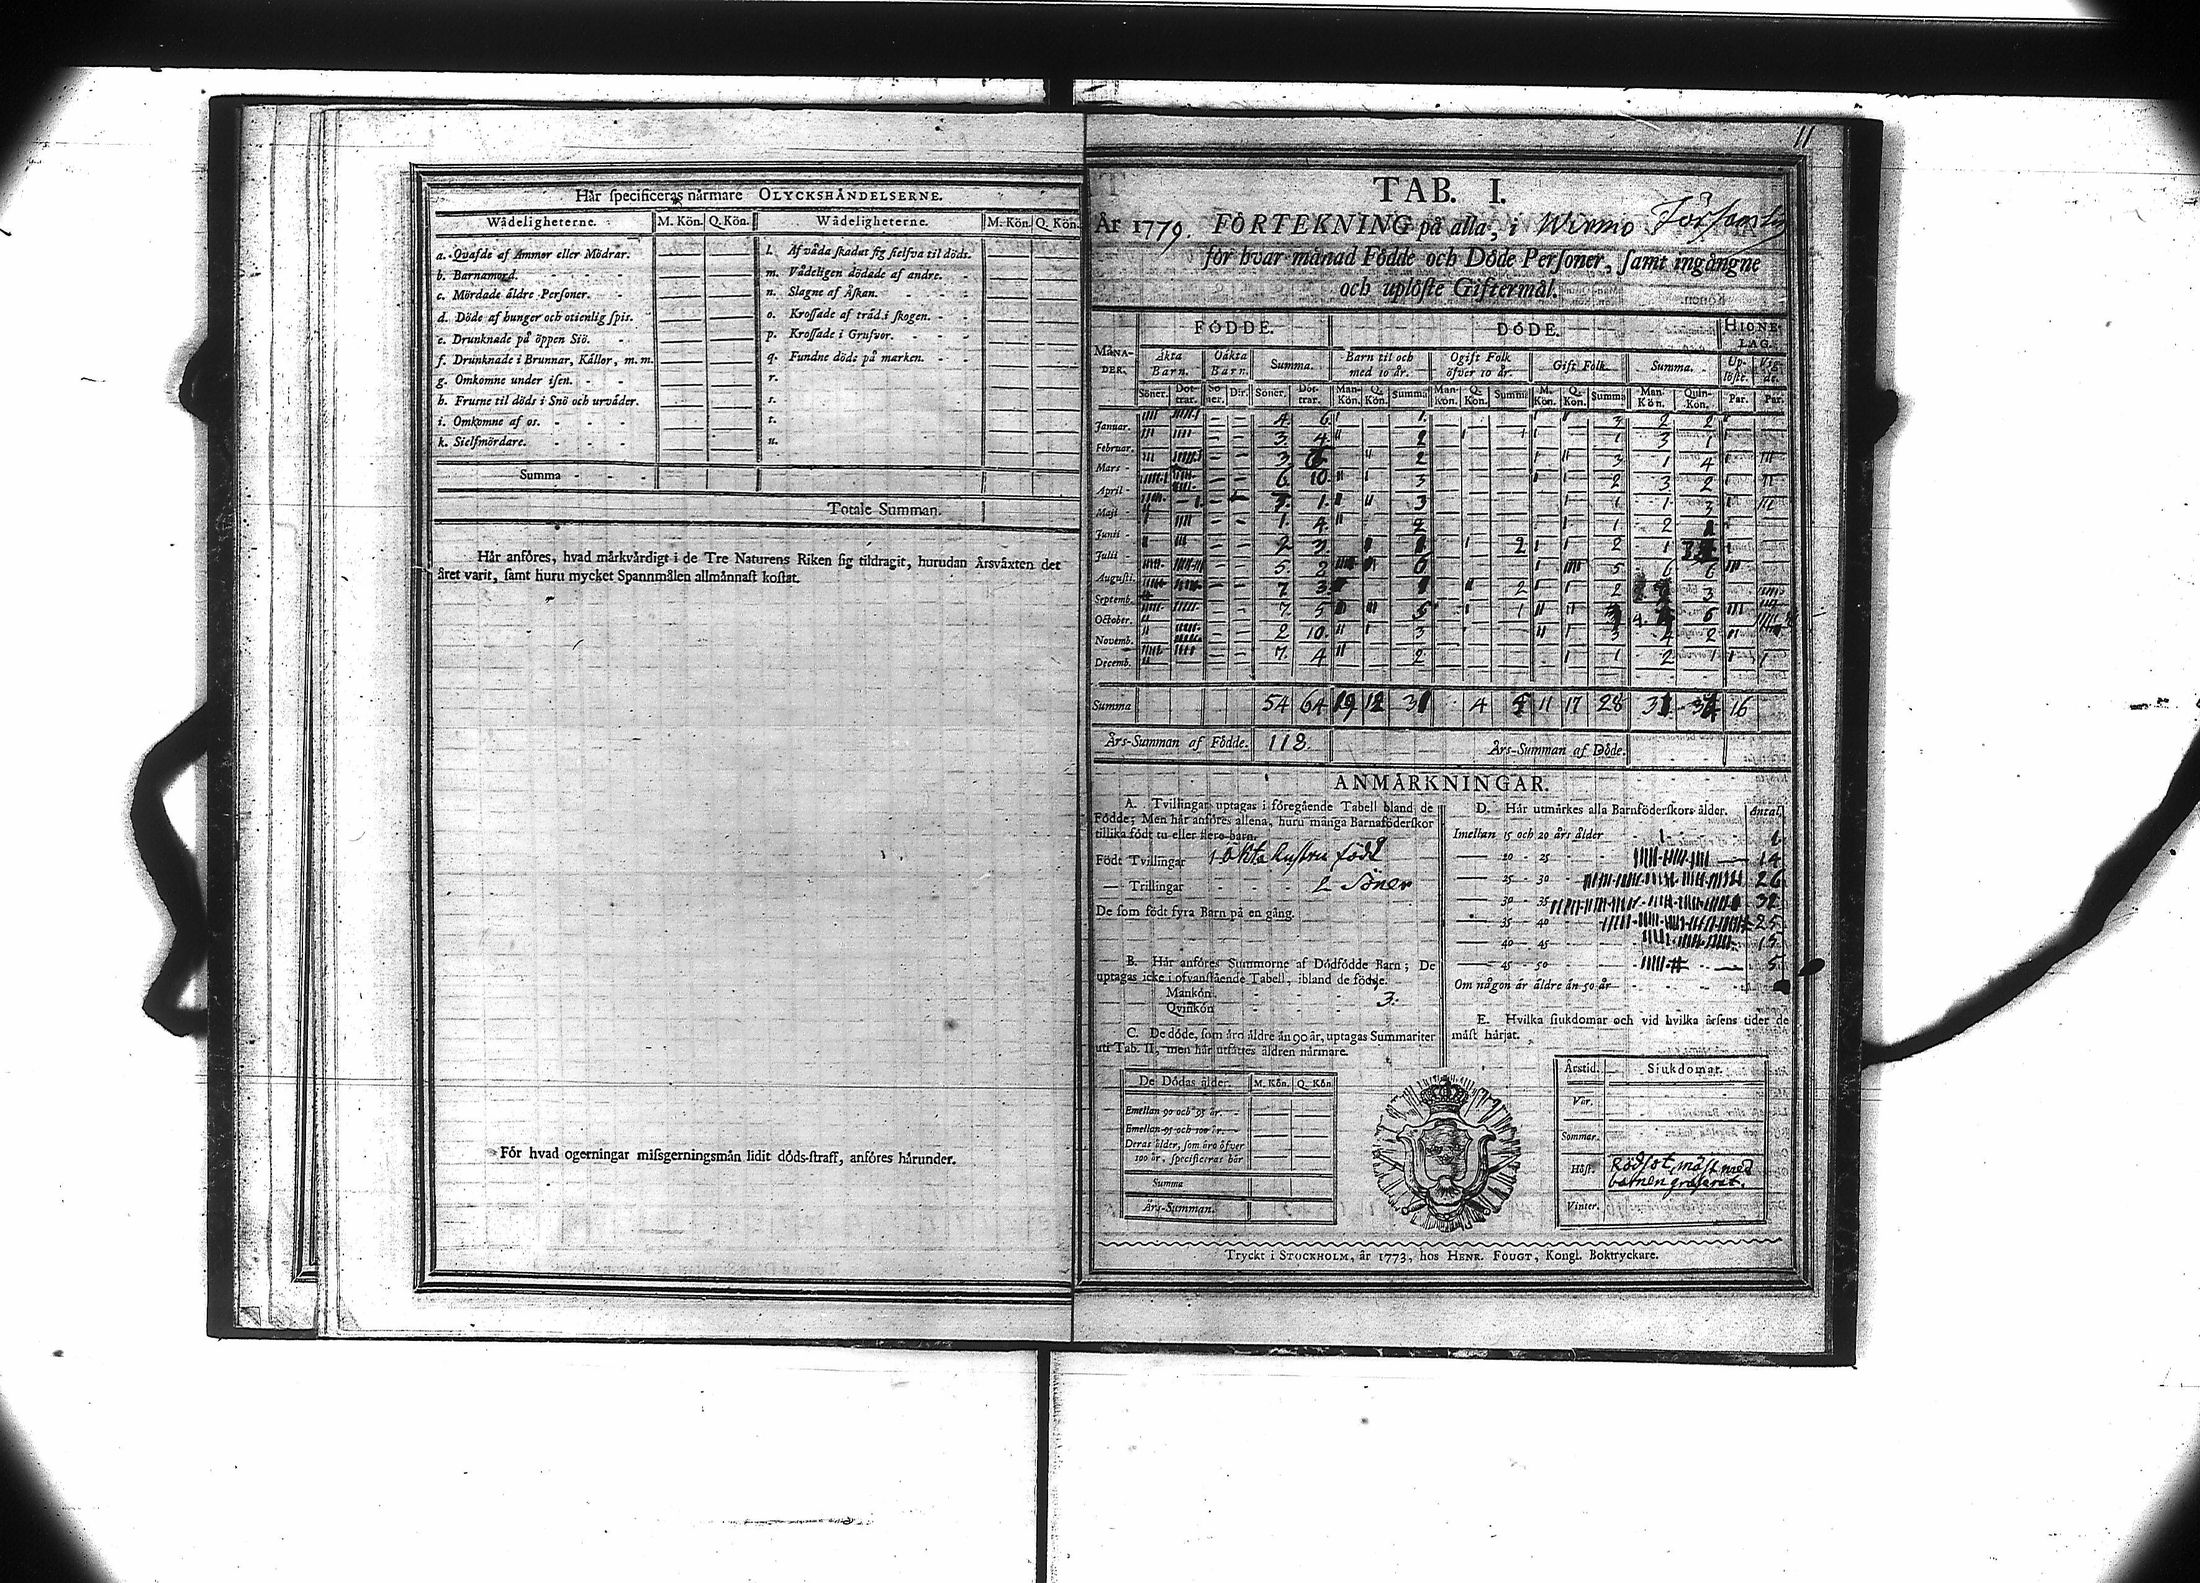 Hår ſpecificeras nårmare OLYCKSHÅNDELSERNE.
Wådeligheterne. M. Kön. Q. Kön. Wådeligheterne. M. Kön. Q. Kön.
a. Qvafde af Ammor eller Mödrar.
b. Barnamord.
c. Mördade åldre Perſoner.
d. Döde af hunger och otienlig ſpis.
e. Drunknade på öppen Siö.
f. Drunknade i Brunnar, Kållor, m. m.
g. Omkomne under iſen.
h. Fruſne til döds i Snö och urvåder.
i. Omkomne af os.
k. Sielfmördare.
Summa
l. Af våda ſkadat ſig ſielfva til döds.
m. Vådeligen dödade af andre.
n. Slagne af Åſkan.
o. Kroſſade af tråd i ſkogen.
p. Kroſſade i Grufvor.
q. Fundne döds på marken.
r.
s.
t.
u.
Totale Summan.
Hår anföres, hvad mårkvårdigt i de Tre Naturens Riken ſig tildragit, hurudan Årsvåxten det
året varit, ſamt huru mycket Spannmålen allmånnaſt koſtat.
För hvad ogerningar miſsgerningsmån lidit döds-ſtraff, anföres hårunder.
11
TAB. I.
År 1779. FÖRTEKNING på alla, i Wirmo Församling
för hvar månad Födde och Döde Perſoner, ſamt ingångne
och uplöſte Giftermål.
FÖDDE. DÖDE. HIONELAG.
MÅNADER. Åkta Barn. Oåkta Barn. Summa. Barn til och med 10 år. Ogift Folk öfver 10 år. Gift Folk. Summa. Uplöſte. Vigde.
Söner. Döttrar. Söner. D:r. Söner. Döttrar. Mankön. Q. Kön. Summa Mankön. Q. Kön. Summa M. Kön. Q. Kön. Summa Man-Kön. Quin-Kön. Par. Par.
Januar. 4. 6. 1. 3 2 2
Februar. 3. 4. 2 1 1 3 1
Mars 3 2 3 1 4
April 6 10 3 2 3 2
Maji 7. 1. 3 1 1 3
Junii 1. 4. 2 1 2
Julii 2 3. 2 2 1
Auguſti. 5. 2 6 5 6 6
Septemb. 7 3 2 2 3
October. 7. 5 5 1 6
Novemb. 2 10. 3 3 4 2
Decemb. 7. 4 2 1 2 1
Summa 54 64 19 12 31 4 5 11 17 28 31 16
Års-Summan af Födde. 118. Års-Summan af Döde.
ANMÅRKNINGAR.
A. Tvillingar uptagas i föregående Tabell bland de
Födde; Men hår anföres allena, huru många Barnaföderſkor
tillika födt tu eller flere barn.
Födt Tvillingar 1 åkta hustru födt
— Trillingar 2 Söner
De ſom födt fyra Barn på en gång.
B. Hår anföres Summorne af Dödfödde Barn; De
uptagas icke i ofvanſtående Tabell, ibland de födde.
Mankön
Qvinkön 3.
C. De döde, ſom åro åldre ån 90 år, uptagas Summariter
uti Tab. II, men hår utſåttes åldren nårmare.
De Dödas ålder. M. Kön. Q. Kön
Emellan 90 och 95 år.
Emellan 95 och 100 år.
Deras ålder, ſom åro öfver
100 år, ſpecificeras hår
Summa
Års-Summan.
D. Hår utmårkes alla Barnföderſkors ålder. Antal
Imellan 15 och 20 års ålder 1
— 20 - 25 14
— 25 - 30 26
— 30 - 35 32
— 35 - 40 25
— 40 - 45 15
— 45 - 50 5
Om någon år åldre ån 50 år
E. Hvilka ſiukdomar och vid hvilka årſens tider de
måſt hårjat.
Årstid. Siukdomar.
Vår.
Sommar.
Höſt. Rödsot, mäst med
barnen graserat.
Vinter.
Tryckt i STOCKHOLM, år 1773, hos HENR. FOUGT, Kongl. Boktryckare.